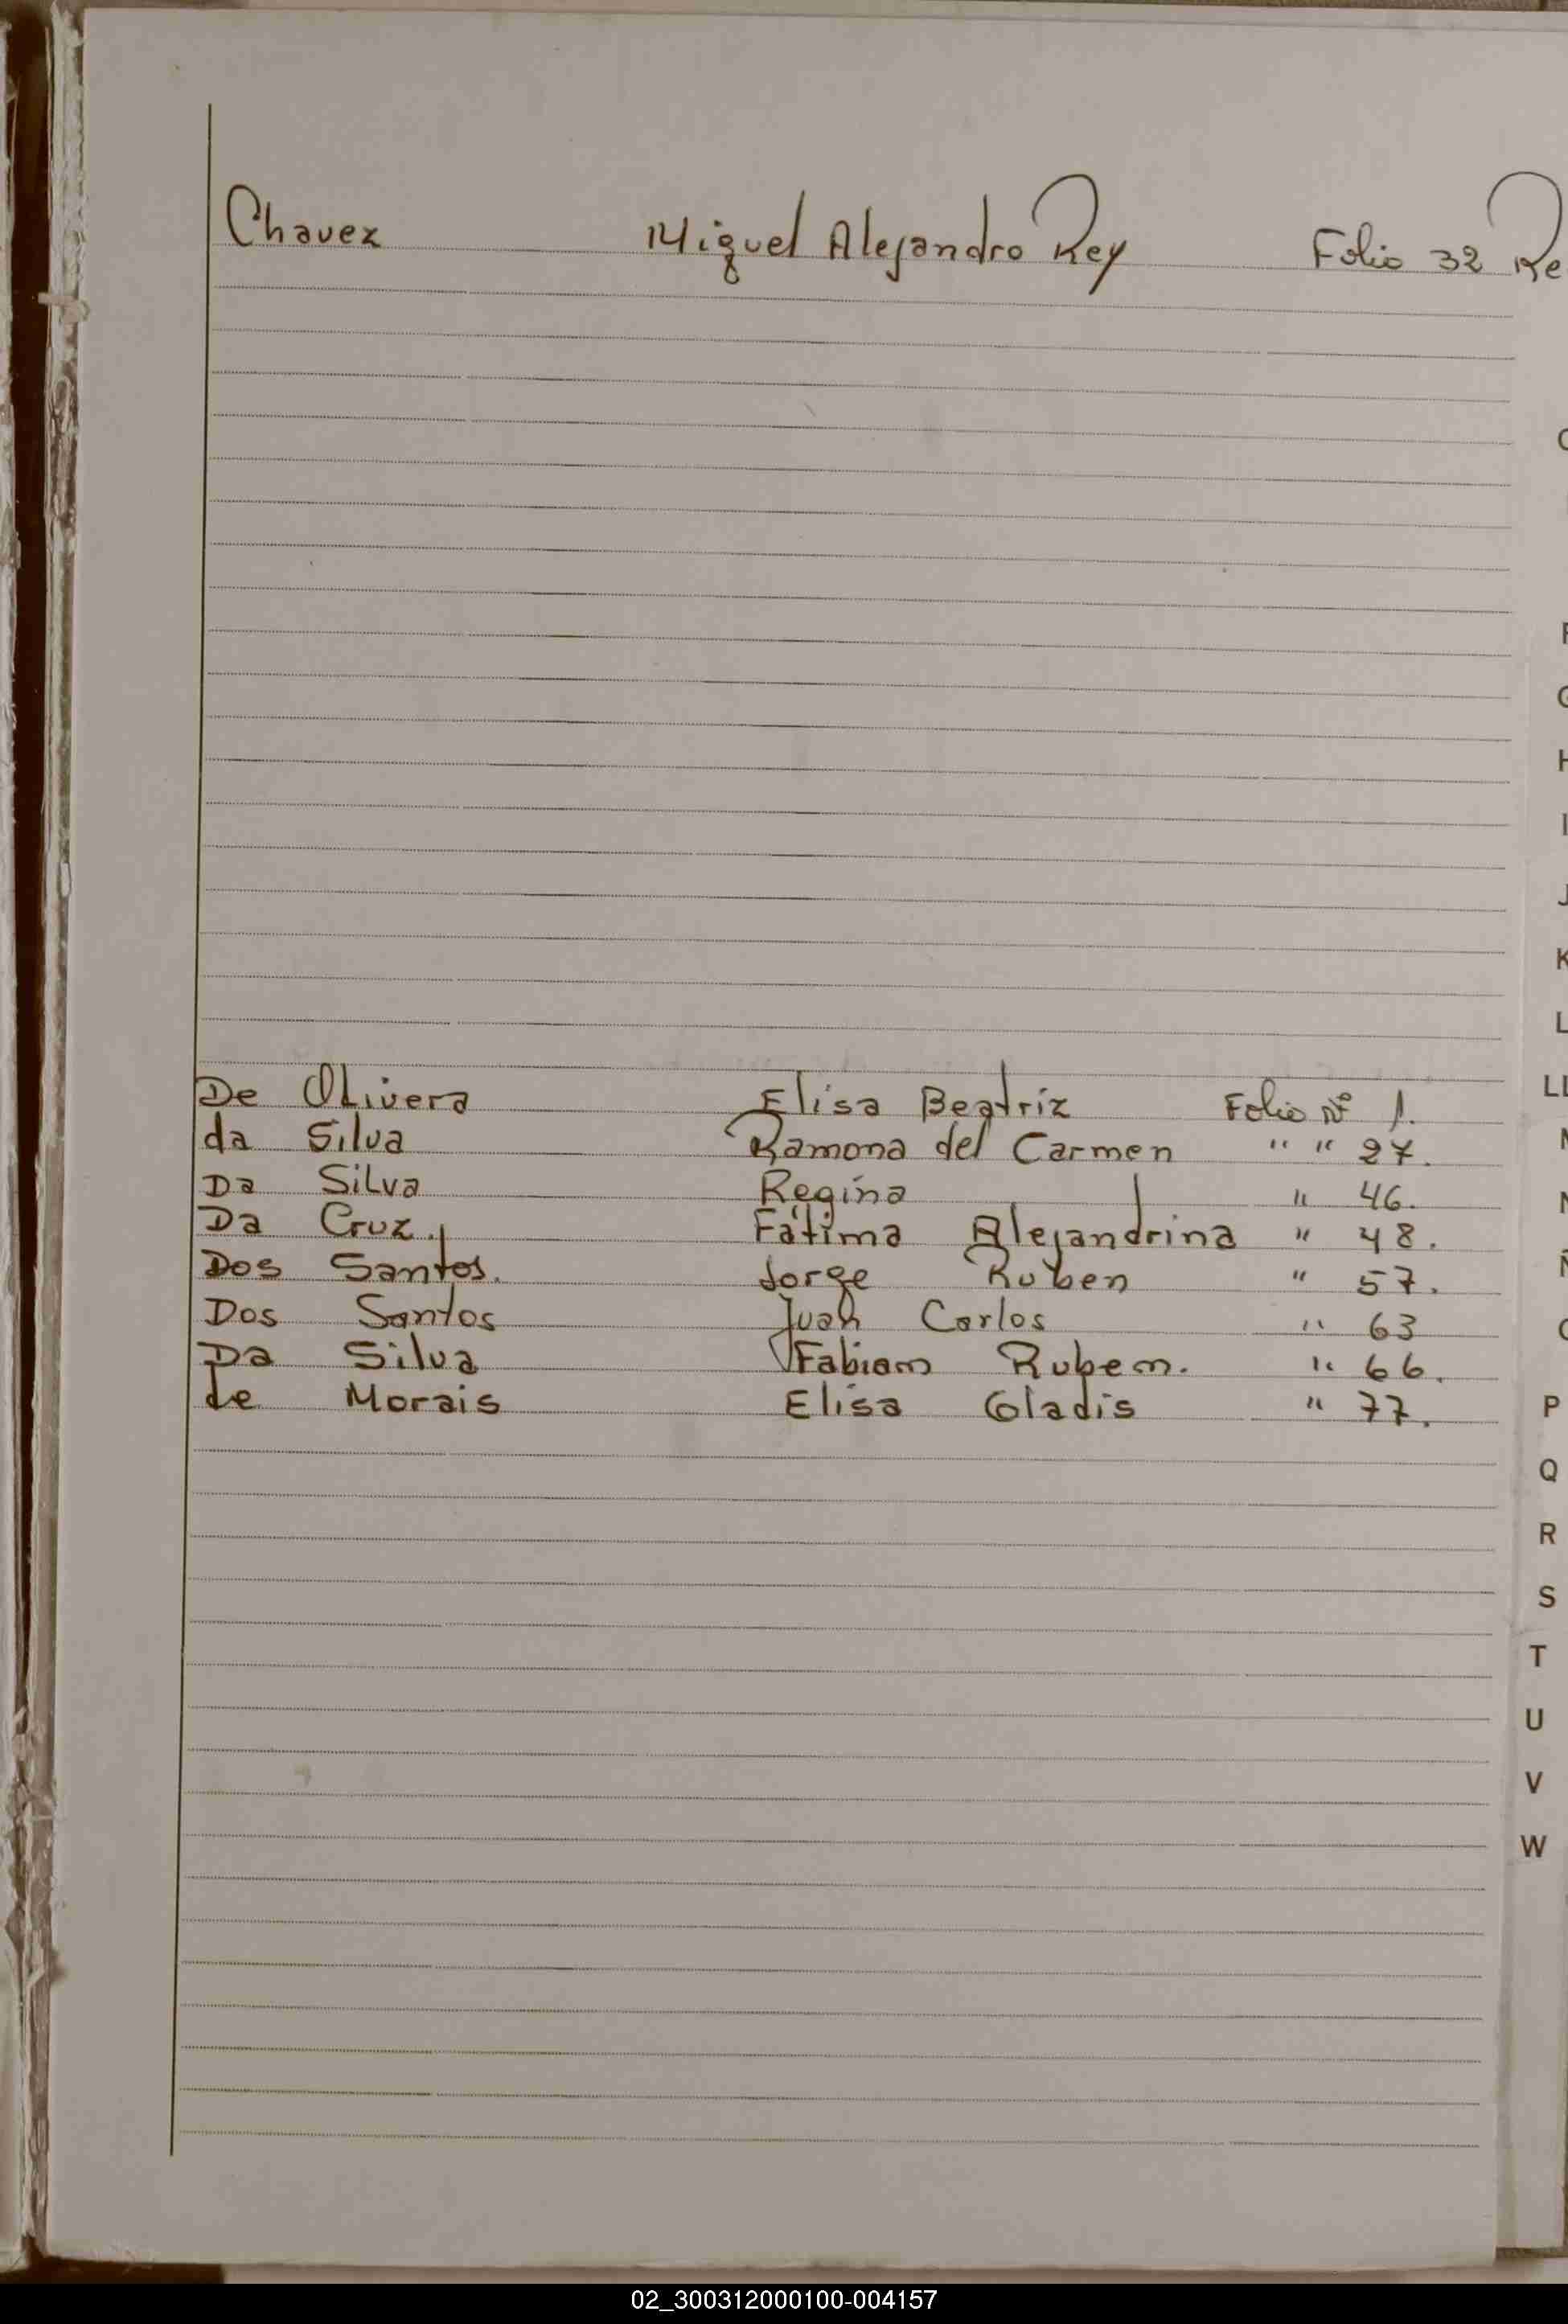 Chavez Miguel Alejandro Rey Folio 32 Re
De Olivera Elisa Beatriz Folio Nº 1.
da Silva Ramona del Carmen " " 27.
Da Silva Regina " 46.
Da Cruz. Fátima Alejandrina " 48.
Dos Santos. Jorge Ruben " 57.
Dos Santos Juan Carlos " 63
Da Silva Fabian Ruben. " 66.
de Morais Elisa Gladis " 77.
H
I
J
K
L
P
Q
R
S
T
U
V
W
02_300312000100-004157